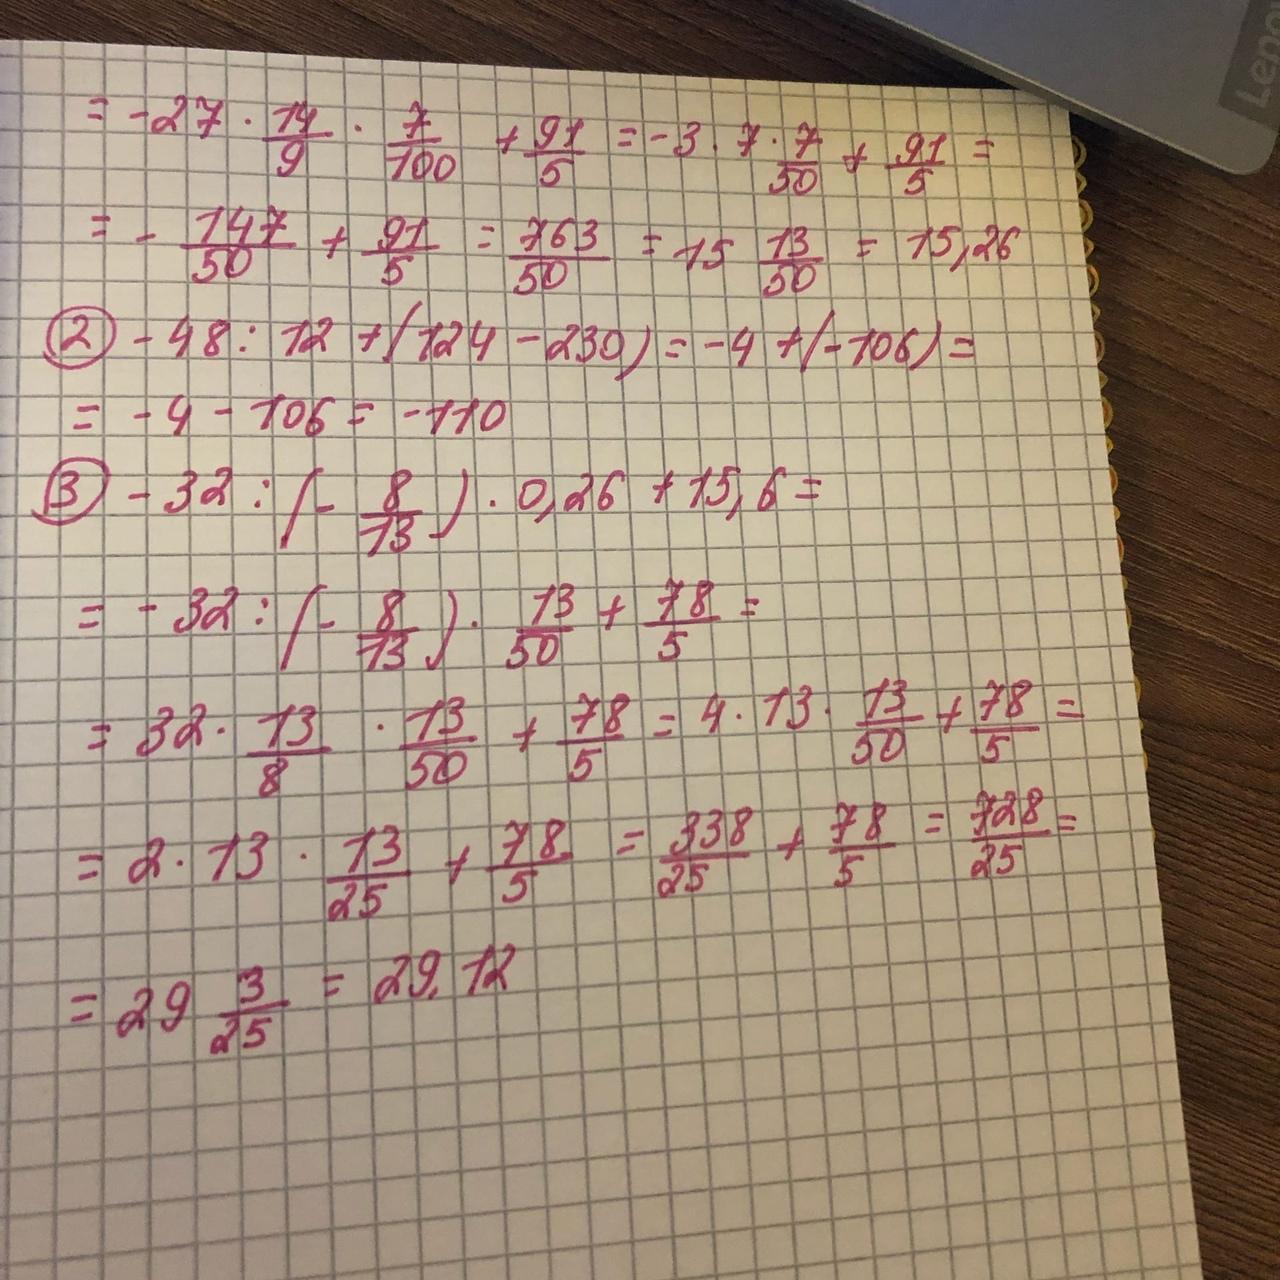 = -27 · 14/9 · 7/100 + 91/5 = -3 · 7 · 7/50 + 91/5 =
= - 147/50 + 91/5 = 763/50 = 15 13/50 = 15,26
② -48 : 12 + (124 - 230) = -4 + (-106) =
= -4 - 106 = -110
③ -32 : (- 8/13) · 0,26 + 15,6 =
= -32 : (- 8/13) · 13/50 + 78/5 =
= 32 · 13/8 · 13/50 + 78/5 = 4 · 13 · 13/50 + 78/5 =
= 2 · 13 · 13/25 + 78/5 = 338/25 + 78/5 = 728/25 =
= 29 3/25 = 29,12